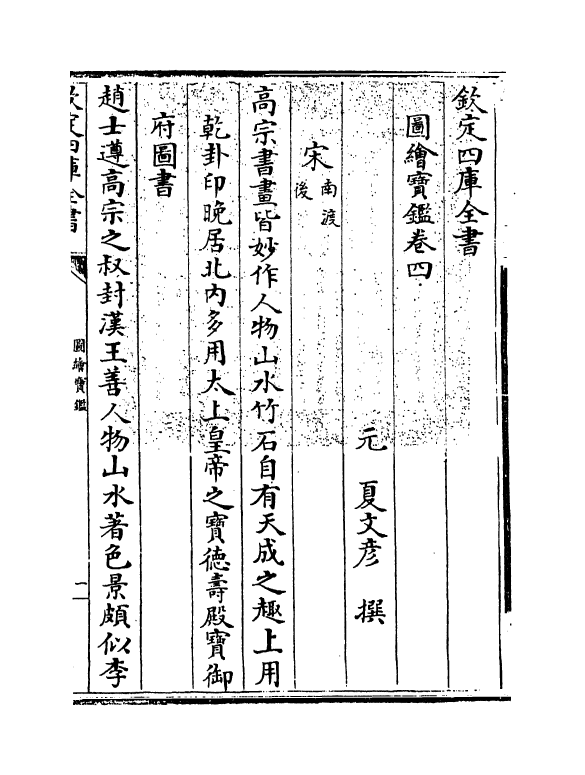 欽定四庫全書
圖繪寶鑑卷四
元 夏文彦 撰
宋南渡後
高宗書畫皆妙作人物山水竹石自有天成之趣上用
乾卦印晚居北内多用太上皇帝之寶德壽殿寶御
府圖書
趙士遵高宗之叔封漢王善人物山水著色景頗似李
欽定四庫全書
圖繪寶鑑
二